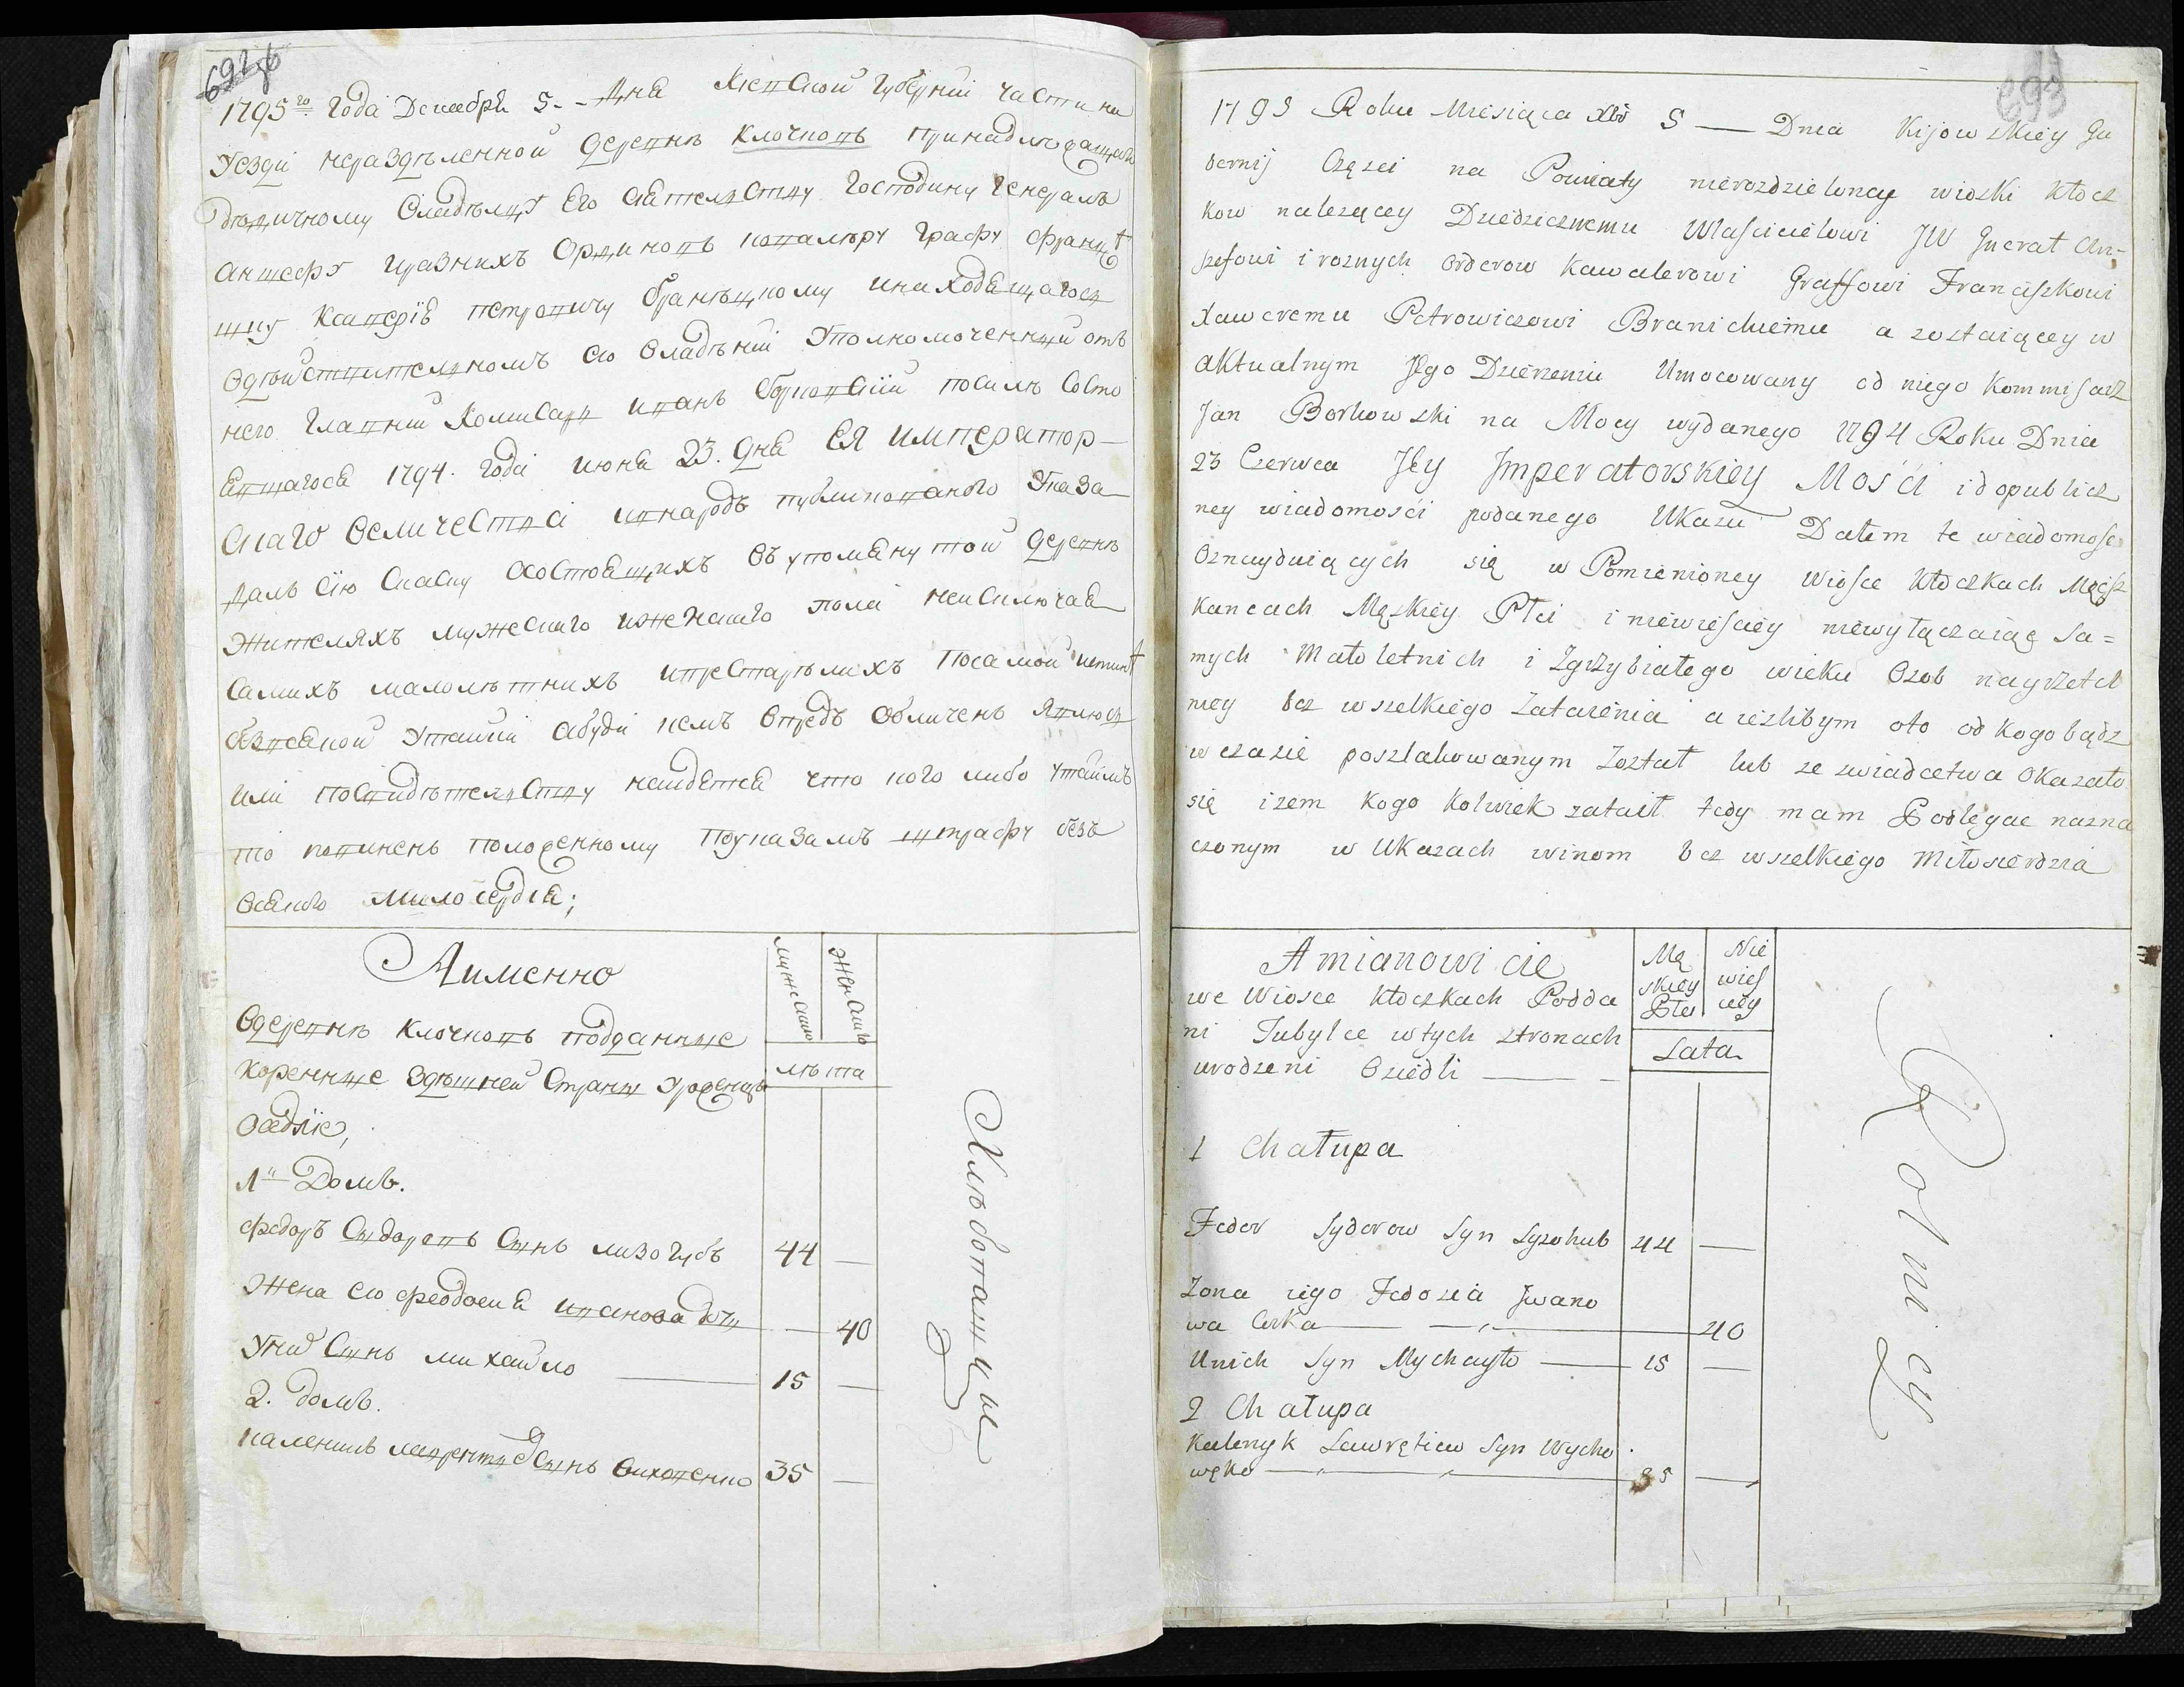 692 об
1795го Года Декабря 5.- Дня Кіевской Губерніи части на
Уезди нераздѣленной деревнѣ Клочковъ принадлежащей
дѣдичному Владѣлцу Его Сіятелству Господину Генералъ
Аншефу и разнихъ Ординовъ кавалѣру Графу Францѣ
шку Ксаверію Петровичу Бранѣцкому инаходящагося
вдѣйствителномъ его владѣніи Уполномоченный отъ
него Главній Комисаръ иванъ Борковскій посилѣ Состо
явшагося 1794. Года июня 23. дня ЕЯ ИМПЕРАТОР-
скаго Величества ивнародъ публикованого Указа
далъ сію скаску Осостоящихъ въ упомянутой деревнѣ
жителяхъ мужескаго иженскаго пола неисключая
самихъ малолѣтнихъ ипрестарѣлихъ Посамой истинѣ
безвсякой Утайки абуди кемъ впредъ обличенъ явлюся
или посвидѣтелству найдется что кого либо утаилъ
то повиненъ положенному Поуказамъ штрафу безъ
всякого милосердія;
Аименно
мужеска
женска
лѣта
Вдеревнѣ Клочковъ подданные
Коренные здѣшней Страны Уроженцы
Оседліе,
1й Домъ.
Федоръ Сыдоровъ Сынъ лизогубъ 44 —
Жена его Феодосия иванова дочь — 40
Унихъ Сынъ михайло 15 —
2. домъ.
каленикъ лаврентиевъ Сынъ вихованко 35 —
Хлѣбопашцы
693
1795 Roku Miesiąca Xbr 5 — Dnia Kijowskiey Gu
bernij Częsci na Powiaty nierozdzieloney wioski Kłocz
kow nalezącey Dziedzicznemu Włascicielowi JW Gnerał An-
szefowi i roznych orderow Kawalerowi Graffowi Franciszkowi
Xaweremu Petrowiczowi Branickiemu a zostaiącey w
aktualnym Jego Dzierzeniu Umocowany od niego Kommisarz
Jan Borkowski na Mocy wydanego 1794 Roku Dnia
23 Czerwca Jey Jmperatorskiey Mości i do publicz
ney wiadomości podanego Ukazu Dałem te wiadomosc
Oznayduiących się w Pomienioney Wiosce Kłoczkach Miesz
kancach Męskiey Płci i niewiesciey niewyłączaiąc Sa=
mych Małoletnich i Zgrzybiałego wieku Osob nayrzetel
niey bez wszelkiego Zataienia a iezlibym oto od kogo bądz
w czasie poszlakowanym Został lub ze swiadectwa Okazało
się izem kogo kolwiek zataił tedy mam Podlegac nazna
czonym w Ukazach winom bez wszelkiego Miłosierdzia
Amianowicie
Mę
skiey
Płci
Nie
wies
ciey
Lata
we Wiosce Kłoczkach Podda
ni Tubylce w tych stronach
urodzeni Osiedli ——
1 Chałupa
Fedor Sydorow Syn Lyzohub 44 —
Zona iego Fedosia Jwano
wa Corka — 40
Unich Syn Mychayło — 15 —
2 Chałupa
Kalenyk Lawrętiew Syn Wycho
węko — 35 —
Rolnicy